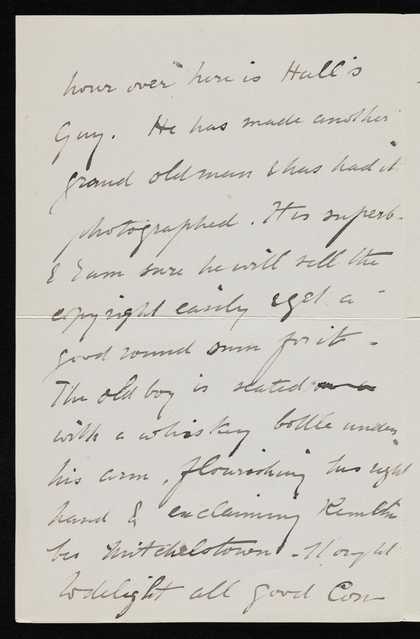 hour over here is Hall's
Guy. He has made another
grand old man & has had it
photographed. It is superb-
& I am sure he will sell the
copyright easily & get a
good round sum for it -
The old boy is seated
with a whiskey bottle under
his arm, flourishing his right
hand & exclaiming Remem
ber Mitchelstown - It ought
to delight all good Con-